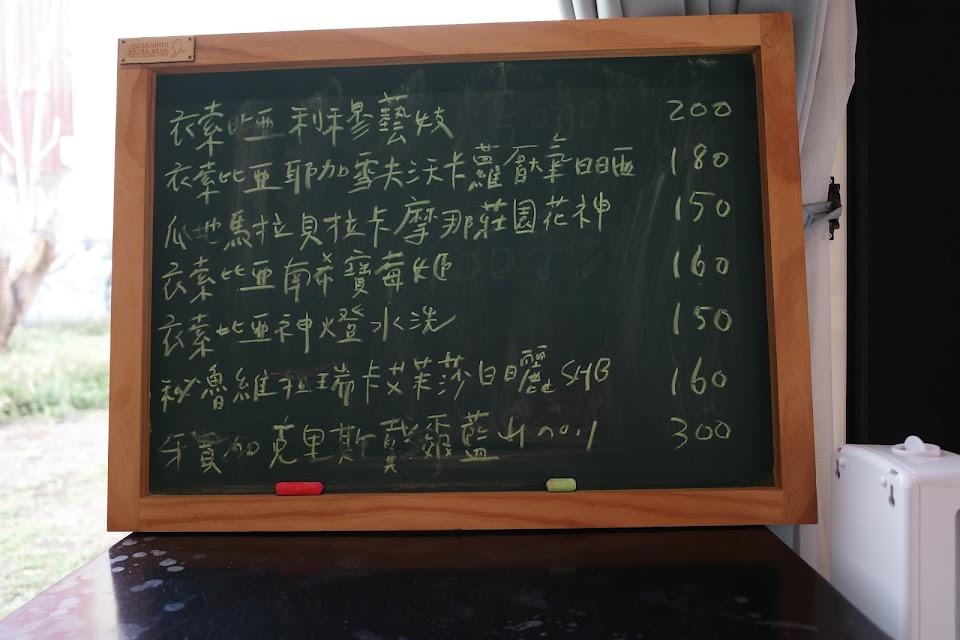 JINGANIKKI
衣索比亞利穆藝妓 200
衣索比亞耶加雪夫沃卡蘿厭氧日曬 180
瓜地馬拉貝拉卡摩那莊園花神 150
衣索比亞南希寶莓姬 160
衣索比亞神燈水洗 150
秘魯維拉瑞卡艾茉莎日曬SHB 160
牙買加克里斯戴爾藍山no.1 300